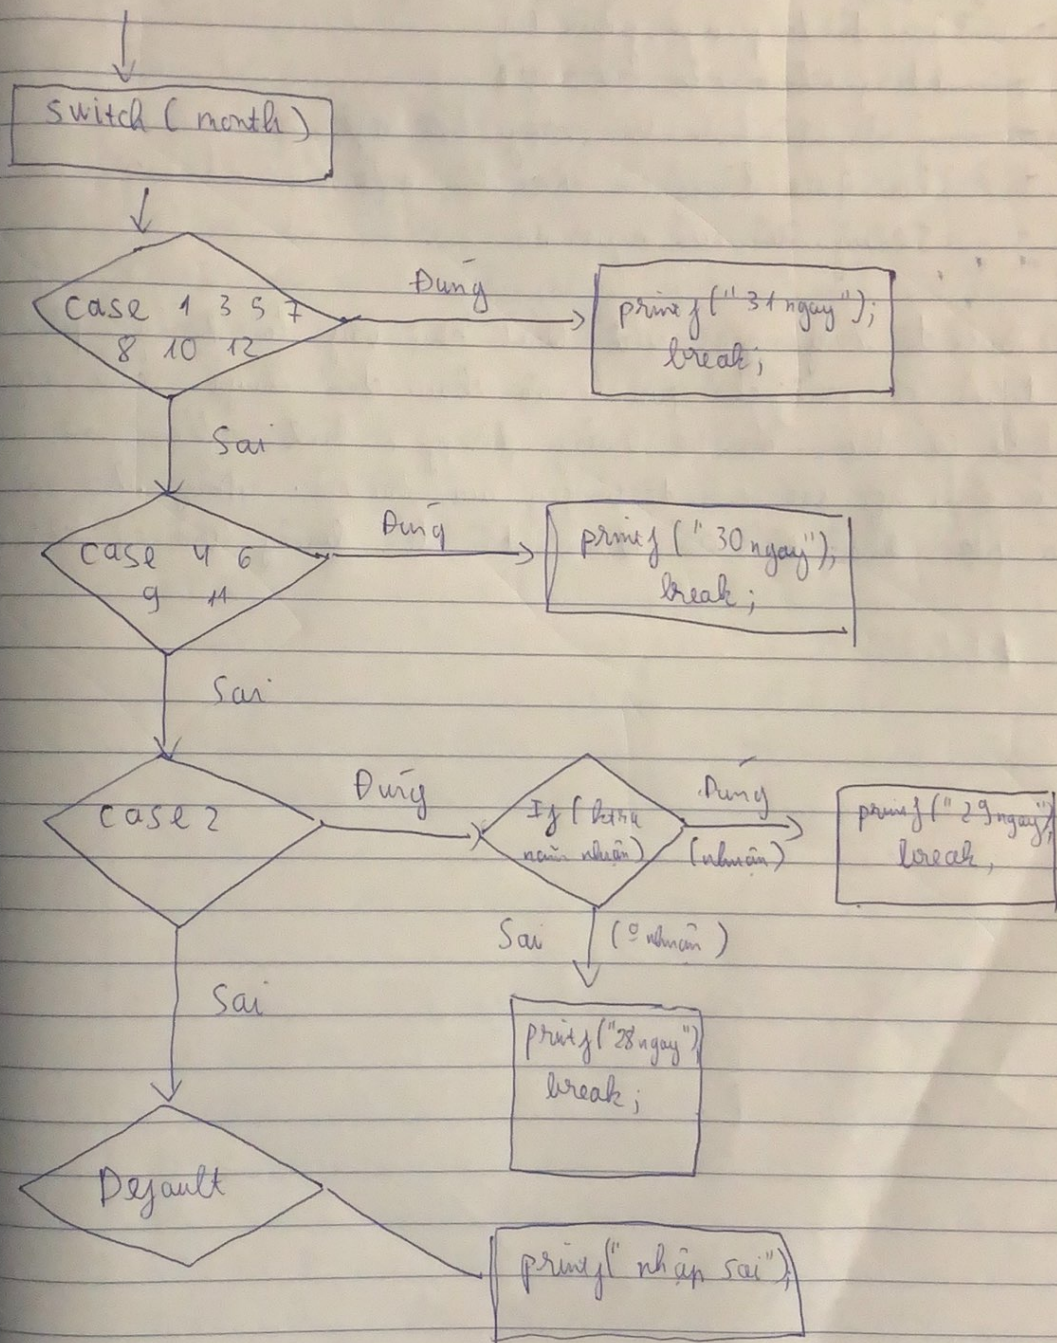 switch (month)
case 1 3 5 7
8 10 12
Đúng
printf("31 ngay");
break;
Sai
case 4 6
9 11
Đúng
printf ("30 ngay");
break;
Sai
case 2
Đúng
If (ktra
năm nhuận)
Đúng
(nhuận)
printf("29 ngay")
break,
Sai (º nhuận)
Sai
printf("28 ngay")
break;
Default
printf(" nhập sai");